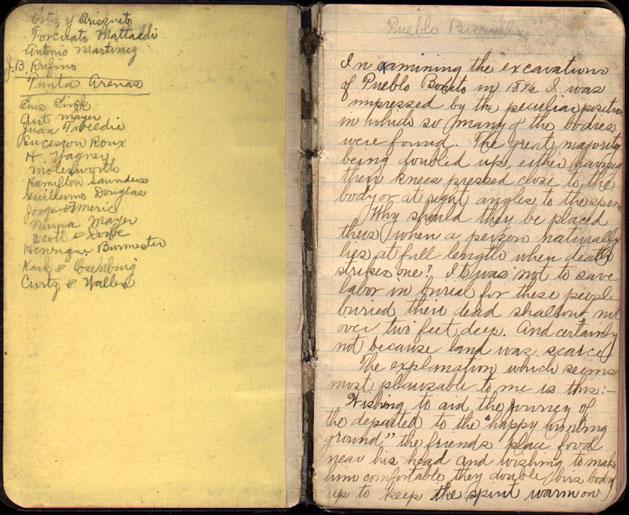 Ortiz y
Torcuato Mattaldi
Antonio Martinez
J.B. Rufino
Punta Arenas
Luis
Mayer
Juan
Roux
H. Wagner
Molesworth
Hamilton Saunders
Guillermo Douglas
Jorge
Mayer
Scott &
Henrique Burmester
Karl &
Curtz &
Pueblo
In examining the excavations
of Pueblo Bonito in 1896 I was
impressed by the peculiar position
in which so many of the bodies
were found. The great majority
being doubled up, either having
their knees pressed close to the
body or at right angles to the spine
Why should they be placed
thus when a person naturally
lies at full length when death
strikes one? It was not to save
labor in burial for these people
buried their dead shallow, not
over two feet deep. And certainly
not because land was scarce.
The explanation which seems
most plausable to me is this:—
Wishing to aid the journey of
the departed to the "happy hunting
ground" the friends place food
near his head and wishing to make
him comfortable they double his body
up to keep the spirit warm on